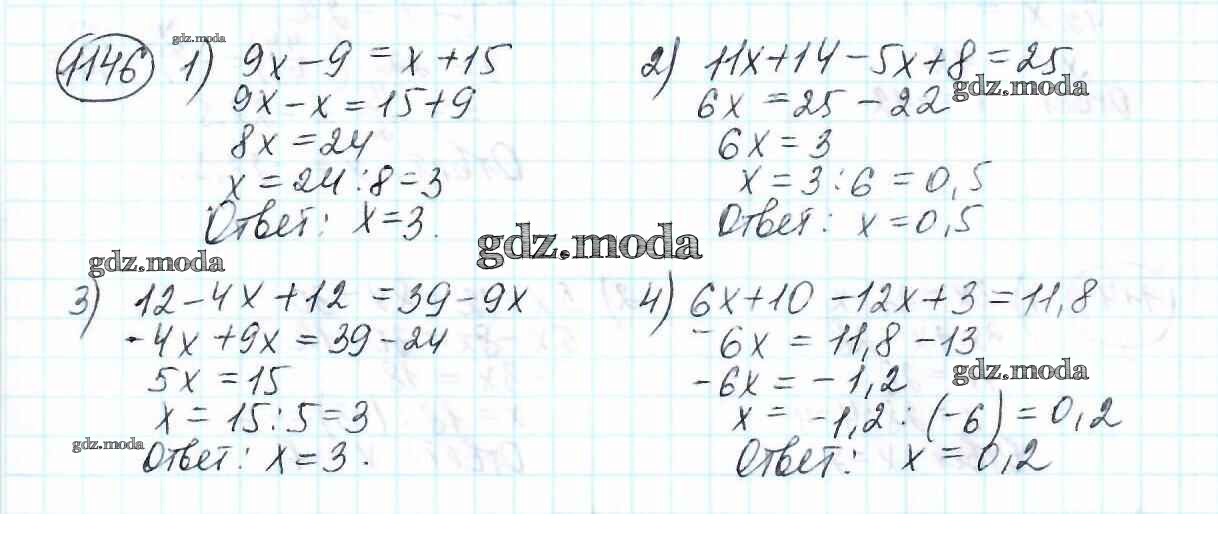 1146
gdz.moda
1) 9x - 9 = x + 15
9x - x = 15 + 9
8x = 24
x = 24 : 8 = 3
Ответ: x = 3.
2) 11x + 14 - 5x + 8 = 25
gdz.moda
6x = 25 - 22
6x = 3
x = 3 : 6 = 0,5
Ответ: x = 0,5
gdz.moda
gdz.moda
3) 12 - 4x + 12 = 39 - 9x
-4x + 9x = 39 - 24
5x = 15
x = 15 : 5 = 3
gdz.moda
Ответ: x = 3.
4) 6x + 10 - 12x + 3 = 11,8
-6x = 11,8 - 13
gdz.moda
-6x = -1,2
x = -1,2 : (-6) = 0,2
Ответ: x = 0,2